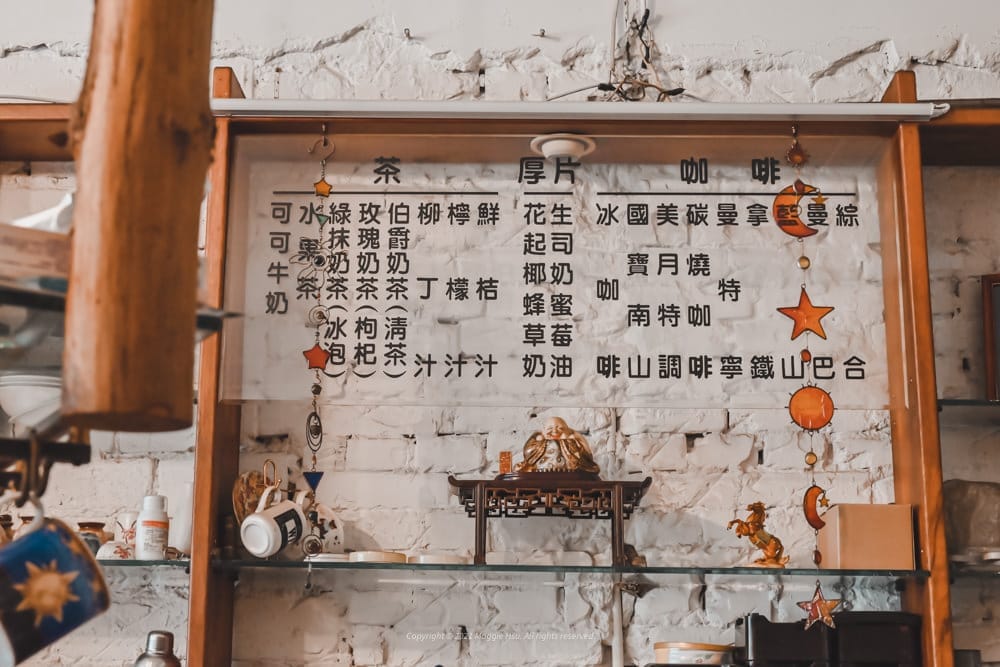 咖啡
綜合
曼巴
藍山
拿鐵
曼特寧
碳燒咖啡
美月特調
國寶南山
冰咖啡
厚片
花生
起司
椰奶
蜂蜜
草莓
奶油
茶
鮮桔汁
檸檬汁
柳丁汁
伯爵奶茶(清茶)
玫瑰奶茶(枸杞)
綠抹奶茶(冰泡)
水果茶
可可牛奶
Copyright © 2021 Maggie Hsu. All rights reserved.